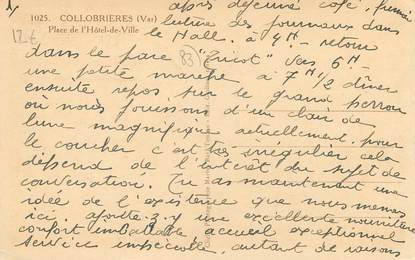 après déjeuné café, fumée
1025. COLLOBRIERES (Var)
Place de l'Hôtel-de-Ville
12 €
lecture des journaux dans
le Hall. à 4H - retour
dans le parc "Tricot" vers 6H -
83
une petite marche à 7H 1/2 dîner
ensuite repos sur le grand perron
où nous jouissons d'un clair de
lune magnifique actuellement. pour
le coucher c'est très irrégulier cela
dépend de l'intérêt du sujet de
conversation. Tu as maintenant une
idée de l'existence que nous menons
ici, ajoute-z-y une excellente nourriture
confort imbattable, accueil exceptionnel
Service impeccable, autant de raisons